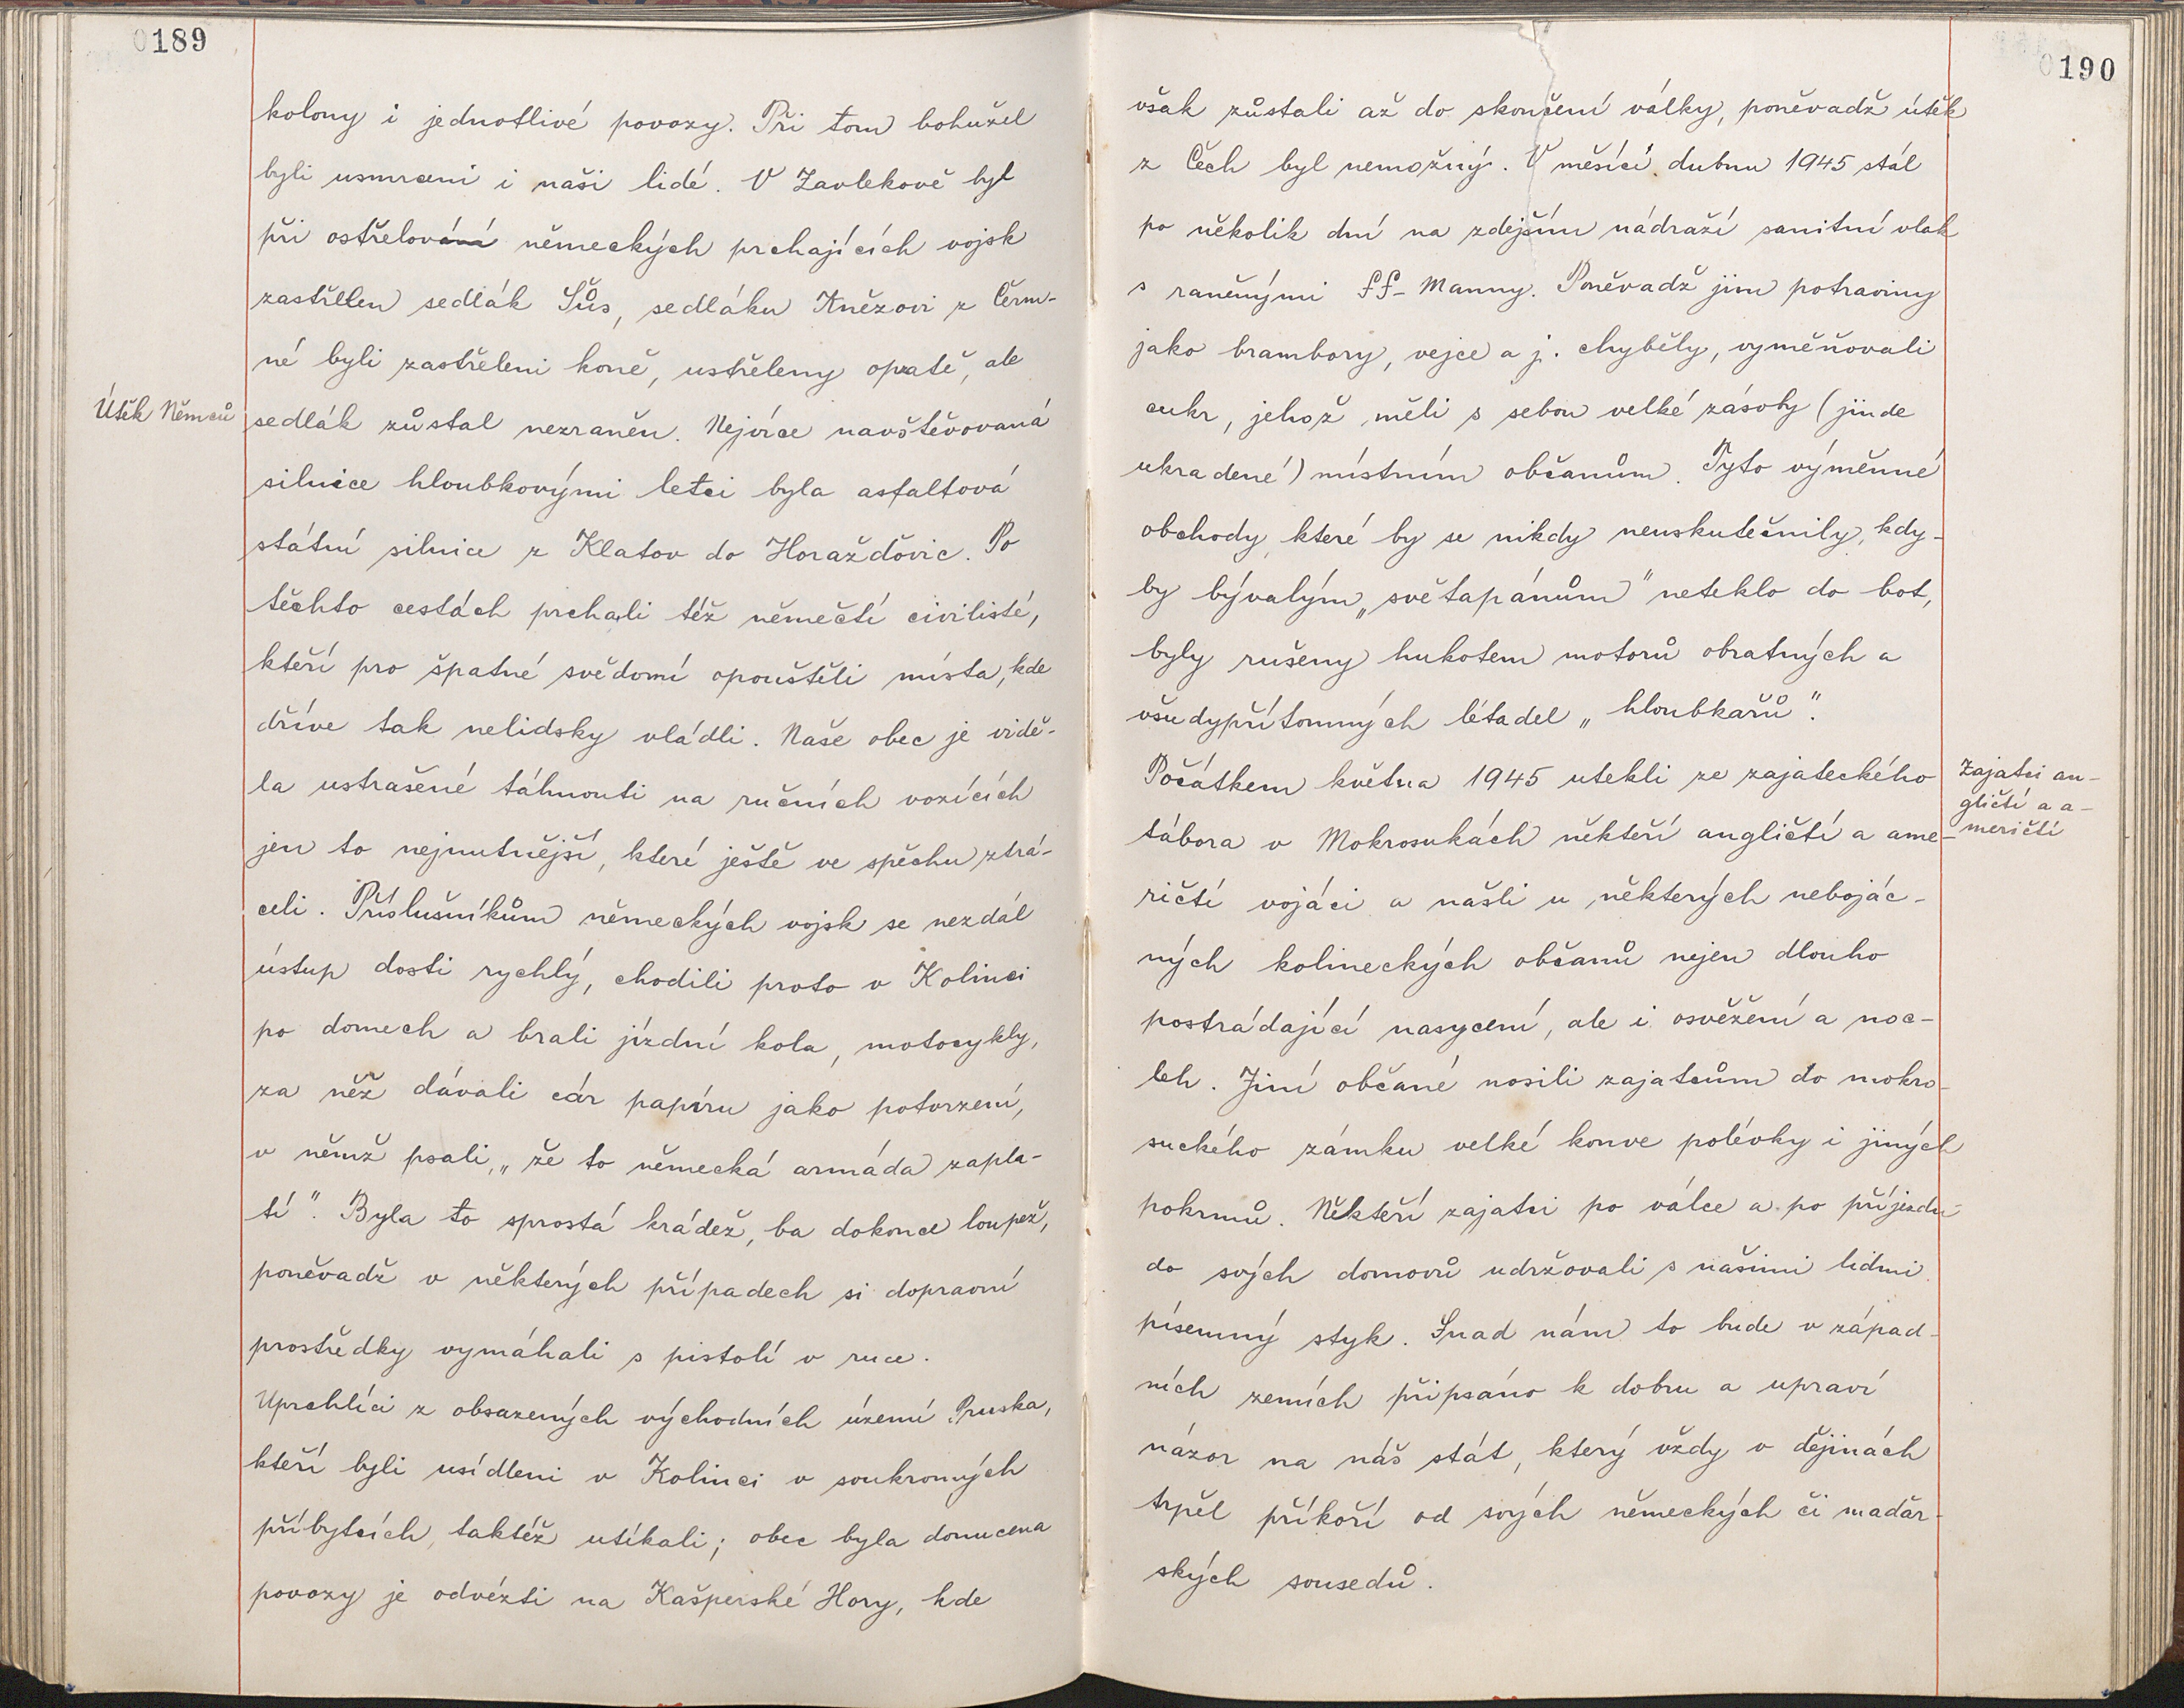 0189
kolony i jednotlivé povozy. Při tom bohužel
byli usmrceni i naši lidé. V Zavlekově byl
při ostřelování německých prchajících vojsk
zastřelen sedlák Šůs, sedláku Knězovi z Čerm-
né byli zastřeleni koně, ustřeleny opratě, ale
Útěk Němců
sedlák zůstal nezraněn. Nejvíce navštěvovaná
silnice hloubkovými letci byla asfaltová
státní silnice z Klatov do Horažďovic. Po
těchto cestách prchali též němečtí civilisté,
kteří pro špatné svědomí opouštěli místa, kde
dříve tak nelidsky vládli. Naše obec je vidě-
la ustrašené táhnouti na ručních vozících
jen to nejnutnější, které ještě ve spěchu ztrá-
celi. Příslušníkům německých vojsk se nezdál
ústup dosti rychlý, chodili proto v Kolinci
po domech a brali jízdní kola, motocykly,
za něž dávali cár papíru jako potvrzení,
v němž psali, „že to německá armáda zapla-
tí". Byla to sprostá krádež, ba dokonce loupež,
poněvadž v některých případech si dopravní
prostředky vymáhali s pistolí v ruce.
Uprchlíci z obsazených východních území Pruska,
kteří byli usídleni v Kolinci v soukromých
příbytcích, taktéž utíkali; obec byla donucena
povozy je odvézti na Kašperské Hory, kde
0190
však zůstali až do skončení války, poněvadž útěk
z Čech byl nemožný. V měsíci dubnu 1945 stál
po několik dní na zdejším nádraží sanitní vlak
s raněnými SS-Manny. Poněvadž jim potraviny
jako brambory, vejce a j. chyběly, vyměňovali
cukr, jehož měli s sebou velké zásoby (jinde
ukradené) místním občanům. Tyto výměnné
obchody, které by se nikdy neuskutečnily, kdy-
by bývalým „světapánům" neteklo do bot,
byly rušeny hukotem motorů obratných a
všudypřítomných létadel „hloubkařů".
Počátkem května 1945 utekli ze zajateckého
tábora v Mokrosukách někteří angličtí a ame-
Zajatci an-
gličtí a a-
meričtí
ričtí vojáci a našli u některých nebojác-
ných kolineckých občanů nejen dlouho
postrádající nasycení, ale i osvěžení a noc-
leh. Jiní občané nosili zajatcům do mokro-
suckého zámku velké konve polévky i jiných
pokrmů. Někteří zajatci po válce a po příjezdu
do svých domovů udržovali s našimi lidmi
písemný styk. Snad nám to bude v západ-
ních zemích připsáno k dobru a upraví
názor na náš stát, který vždy v dějinách
trpěl příkoří od svých německých či maďar-
ských sousedů.